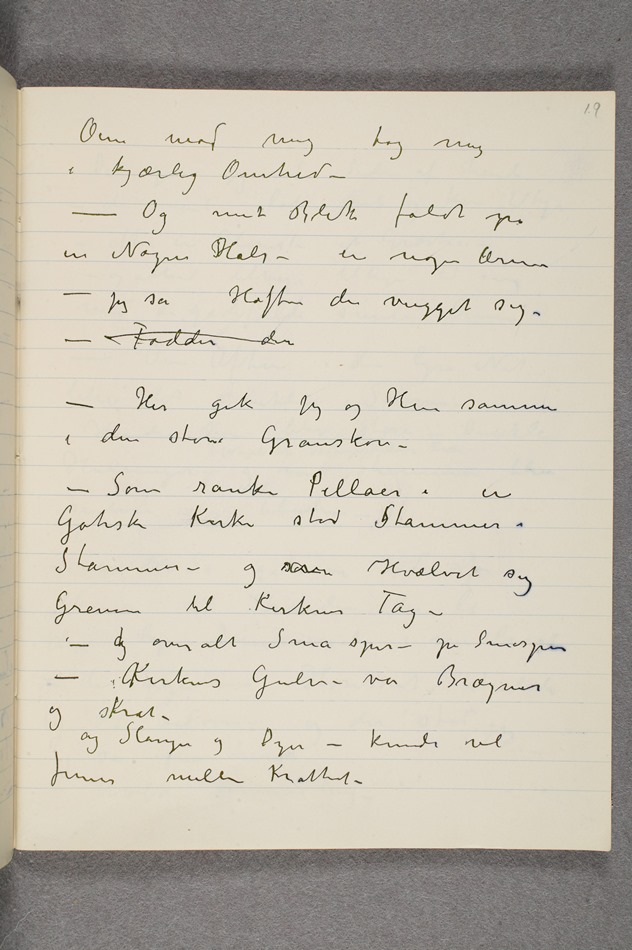 19
Øine mod mig tog mig
i kjærlig Omhed –
— Og mit Blik faldt på
en Nøgen Hals – en nøgen Arm
— jeg sa Hoften der vugget sig.
— Fødder der
— Her gik jeg og Hun sammen
i den store Granskov –
— Som ranke Pillaer i en
Gotisk Kirke stod Stammer.
Stammer – og Hvælvet sig
Grenene til Kirkens Tag –
— og overalt Små spir – på Småspir
— Kirkens Gulv – var Brægner
og skrat –
og Slanger og Dyr – kunde vel
finnes mellem Krattet –